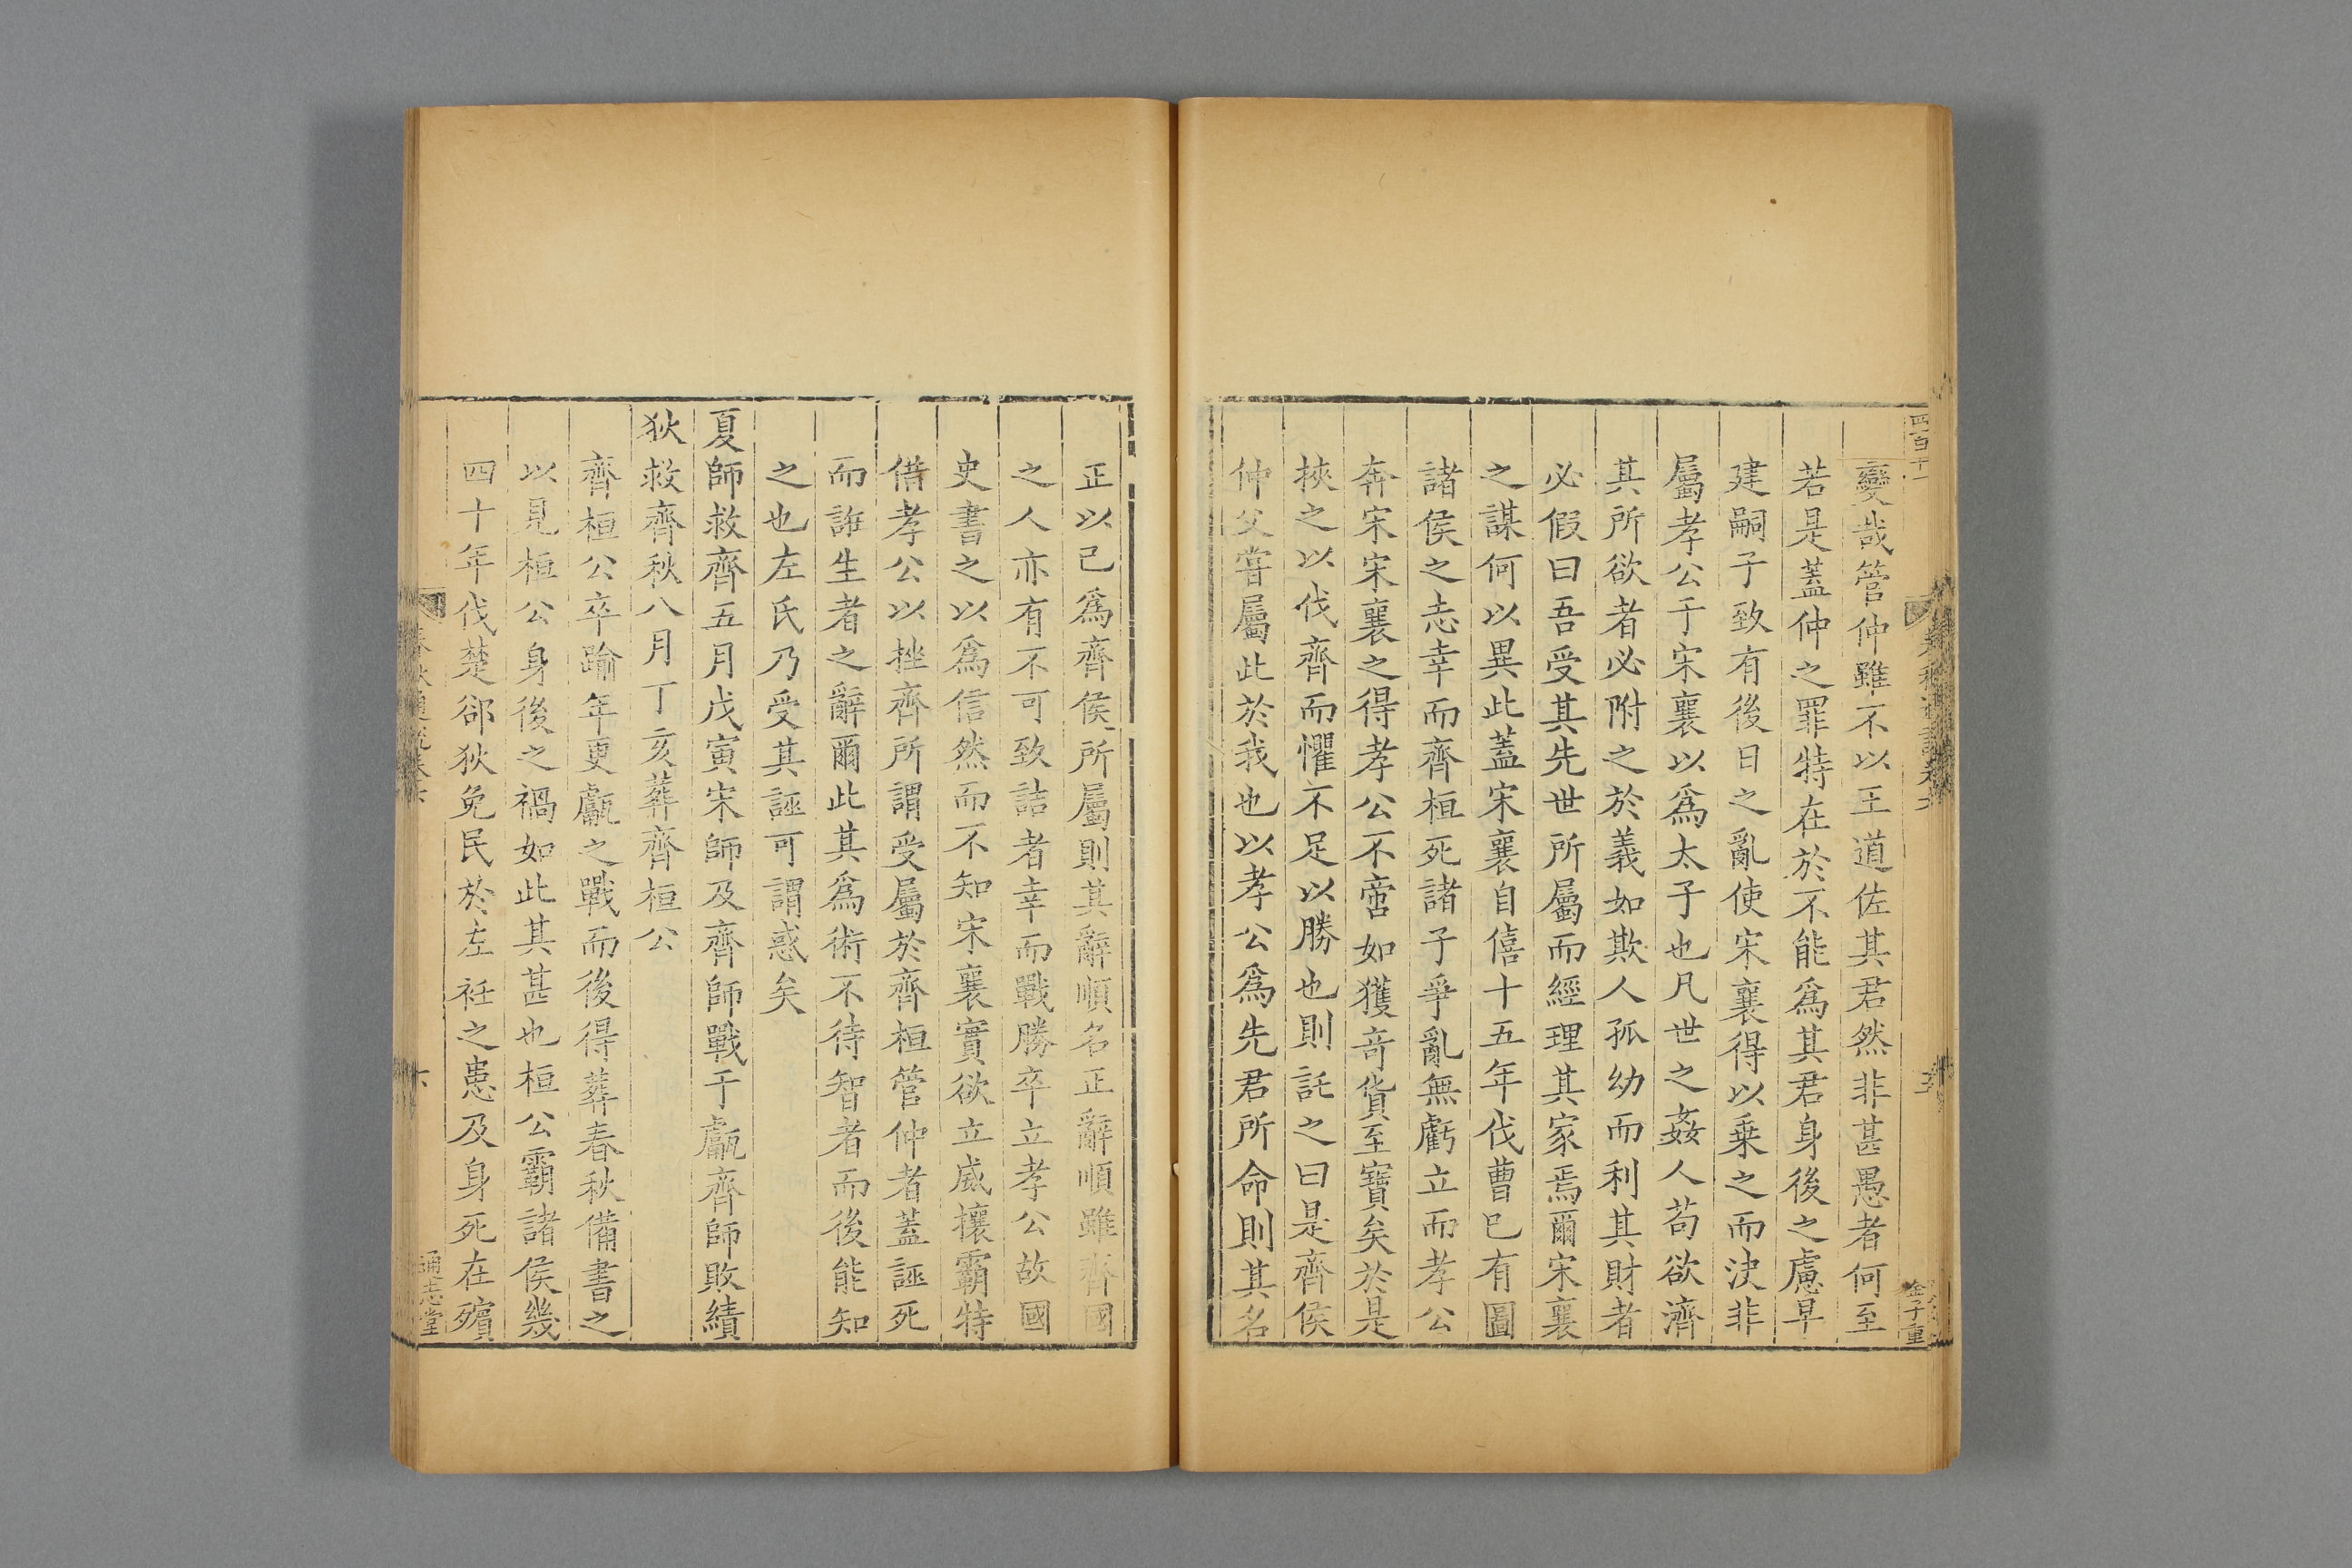 變哉管仲雖不以王道佐其君然非甚愚者何至
若是蓋仲之罪特在於不能爲其君身後之慮早
建嗣子致有後日之亂使宋襄得以乗之而決非
屬孝公于宋襄以爲太子也凡世之姦人苟欲濟
其所欲者必附之於義如欺人孤幼而利其財者
必假曰吾受其先世所屬而經理其家焉爾宋襄
之謀何以異此蓋宋襄自僖十五年伐曹已有圖
諸侯之志幸而齊桓死諸子爭亂無虧立而孝公
奔宋宋襄之得孝公不啻如獲竒貨至寶矣於是
挾之以伐齊而懼不足以勝也則託之曰是齊侯
仲父嘗屬此於我也以孝公爲先君所命則其名
金子重
正以已爲齊侯所屬則其辭順名正辭順雖齊國
之人亦有不可致詰者幸而戰勝卒立孝公故國
史書之以爲信然而不知宋襄實欲立威攘霸特
借孝公以挫齊所謂受屬於齊桓管仲者蓋誣死
而誑生者之辭爾此其爲術不待智者而後能知
之也左氏乃受其誣可謂惑矣
夏師救齊五月戊寅宋師及齊師戰于甗齊師敗績
狄救齊秋八月丁亥葬齊桓公
齊桓公卒踰年更甗之戰而後得葬春秋備書之
以見桓公身後之禍如此其甚也桓公霸諸侯幾
四十年伐楚郤狄免民於左衽之患及身死在殯
通志堂